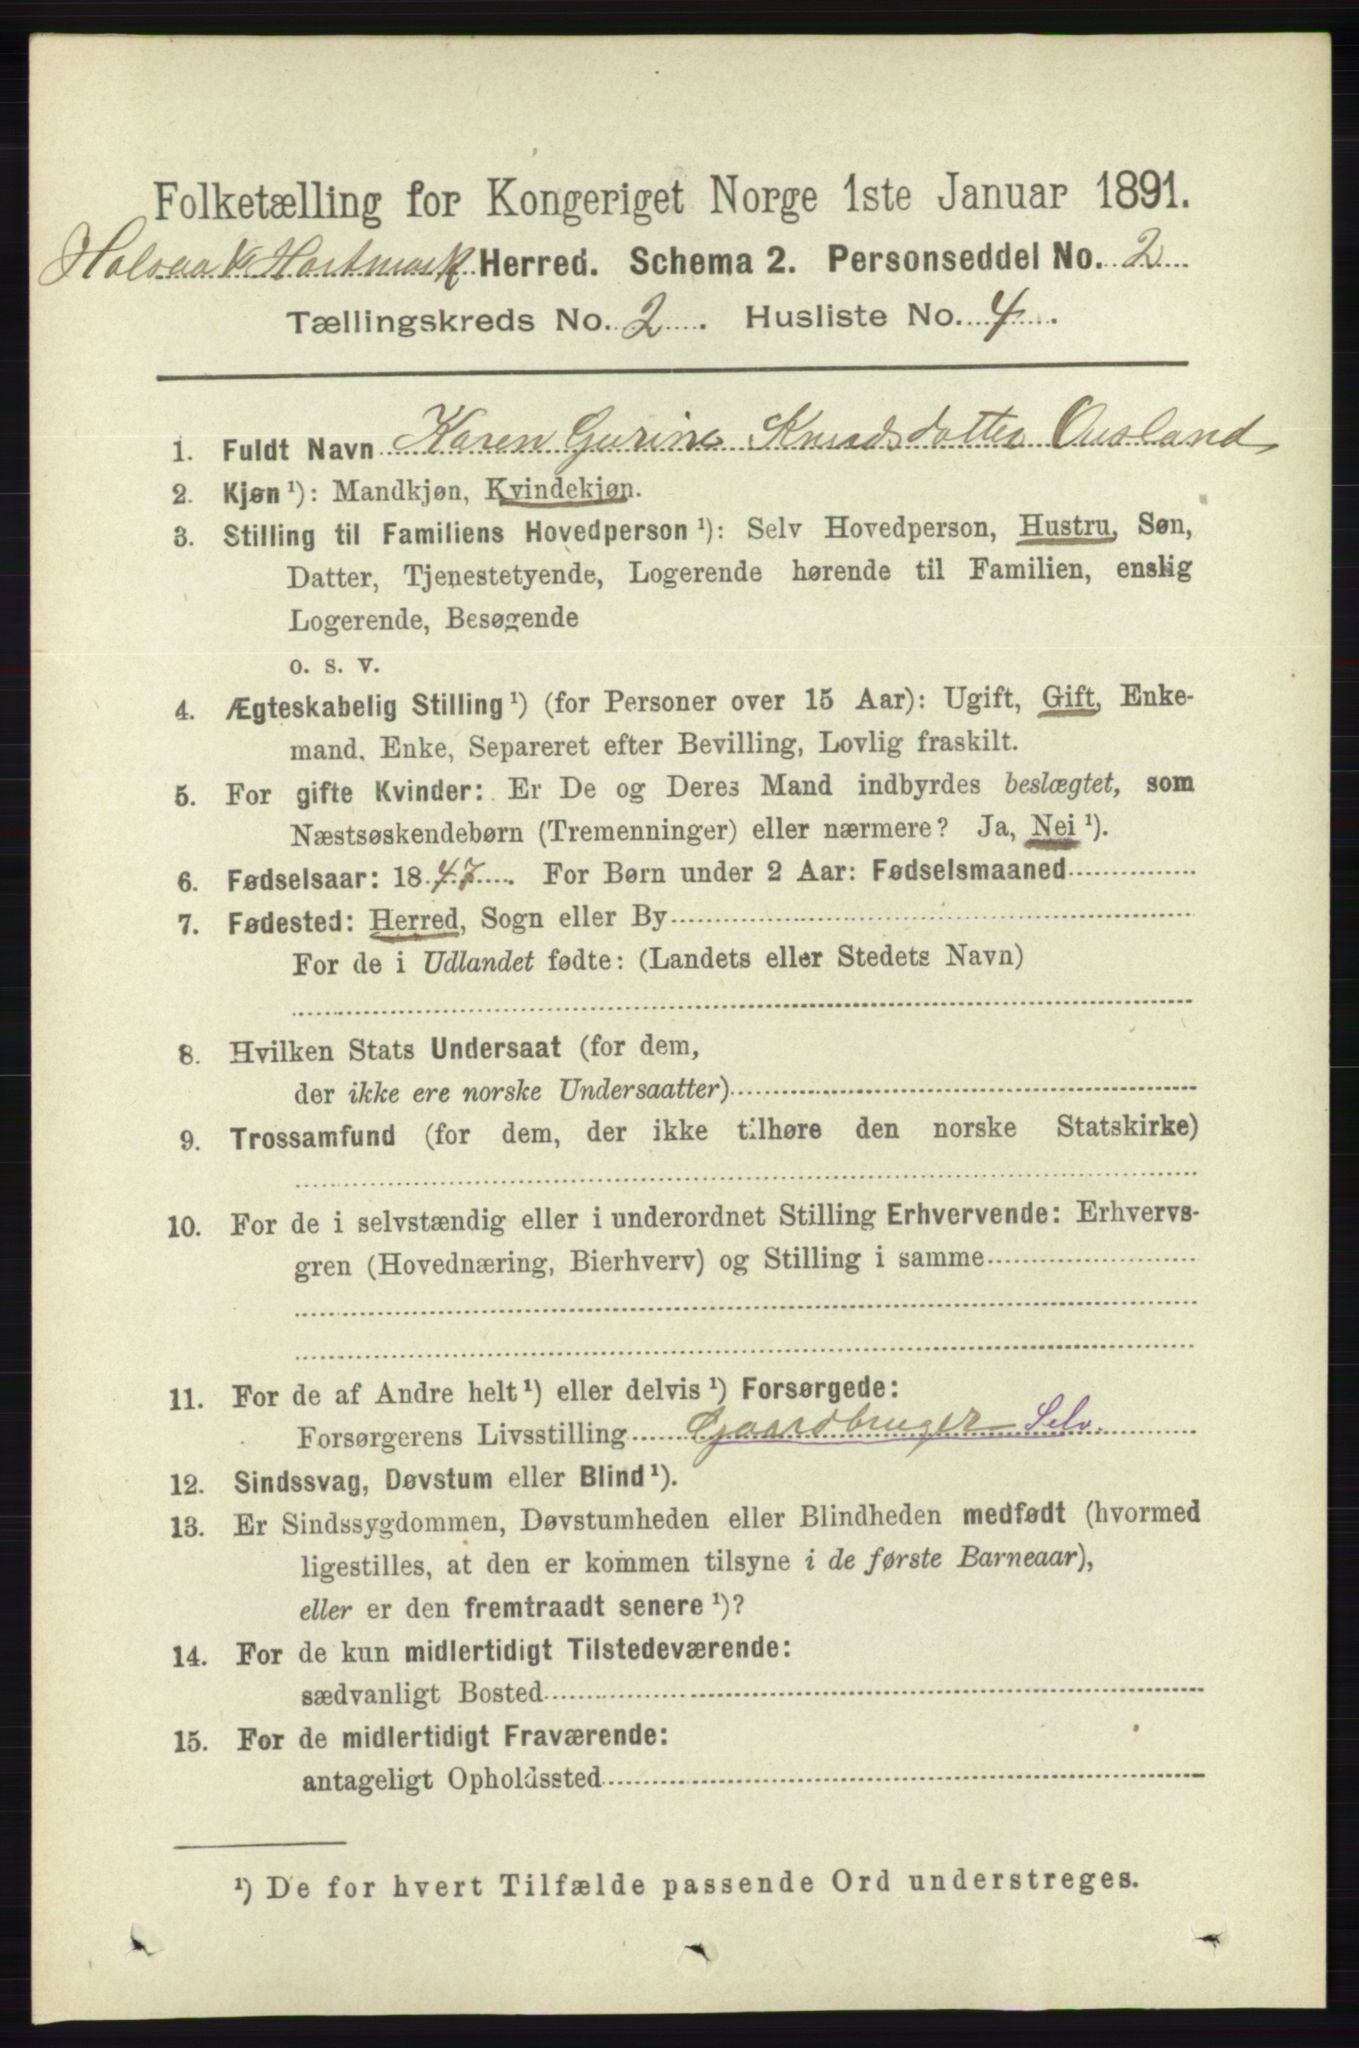 Folketælling for Kongeriget Norge 1ste Januar 1891.
Halsaa & Hartmark Herred. Schema 2. Personseddel No. 2
Tællingskreds No. 2. Husliste No. 4.
1. Fuldt Navn Karen Gurine Knudsdatter Ousland
2. Kjøn ¹): Mandkjøn, Kvindekjøn.
3. Stilling til Familiens Hovedperson ¹): Selv Hovedperson, Hustru, Søn,
Datter, Tjenestetyende, Logerende hørende til Familien, enslig
Logerende, Besøgende
o. s. v.
4. Ægteskabelig Stilling ¹) (for Personer over 15 Aar): Ugift, Gift, Enke-
mand, Enke, Separeret efter Bevilling, Lovlig fraskilt.
5. For gifte Kvinder: Er De og Deres Mand indbyrdes beslægtet, som
Næstsøskendebørn (Tremenninger) eller nærmere? Ja, Nei ¹).
6. Fødselsaar: 1847. For Børn under 2 Aar: Fødselsmaaned
7. Fødested: Herred, Sogn eller By
For de i Udlandet fødte: (Landets eller Stedets Navn)
8. Hvilken Stats Undersaat (for dem,
der ikke ere norske Undersaatter)
9. Trossamfund (for dem, der ikke tilhøre den norske Statskirke)
10. For de i selvstændig eller i underordnet Stilling Erhvervende: Erhvervs-
gren (Hovednæring, Bierhverv) og Stilling i samme
11. For de af Andre helt ¹) eller delvis ¹) Forsørgede:
Forsørgerens Livsstilling Gjaardbruger Selv.
12. Sindssvag, Døvstum eller Blind ¹).
13. Er Sindssygdommen, Døvstumheden eller Blindheden medfødt (hvormed
ligestilles, at den er kommen tilsyne i de første Barneaar),
eller er den fremtraadt senere ¹)?
14. For de kun midlertidigt Tilstedeværende:
sædvanligt Bosted
15. For de midlertidigt Fraværende:
antageligt Opholdssted
¹) De for hvert Tilfælde passende Ord understreges.